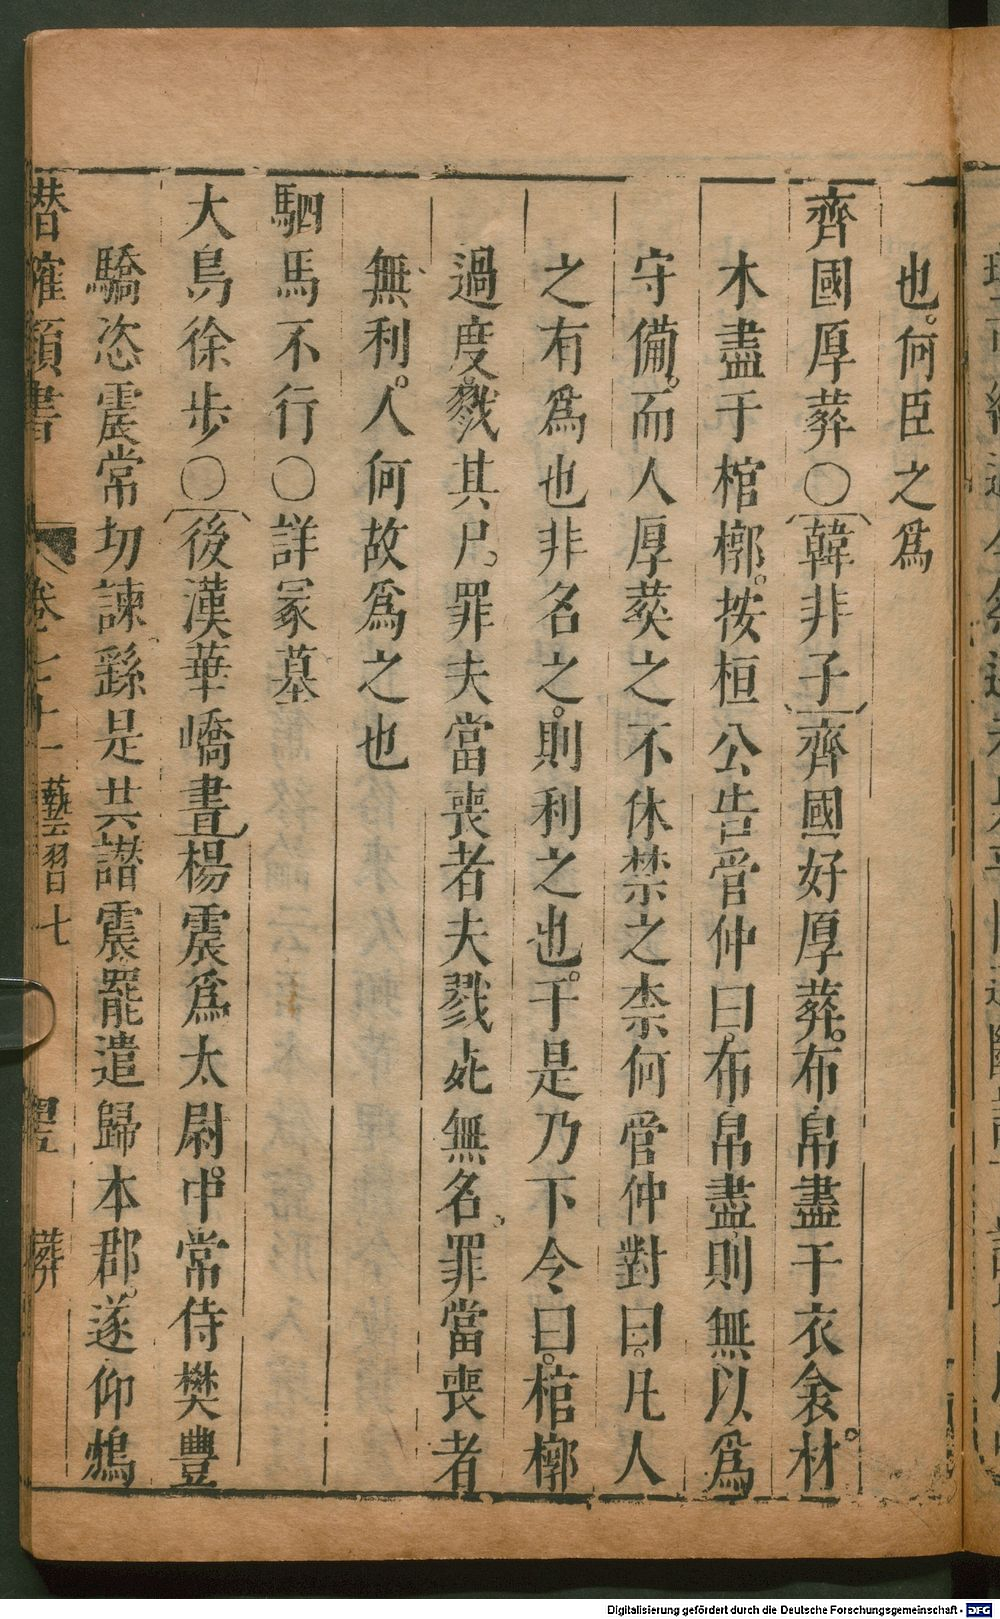 也何臣之爲
齊國厚葬○韓非子齊國好厚葬布帛盡于衣衾材
木盡于棺槨按桓公告管仲曰布帛盡則無以爲
守備而人厚葬之不休禁之柰何管仲對曰凡人
之有爲也非名之則利之也于是乃下令曰棺槨
過度戮其尸罪夫當喪者夫戮死無名罪當喪者
無利人何故爲之也
駟馬不行○詳冢墓
大鳥徐步○後漢華嶠書楊震爲太尉中常侍樊豐
驕恣震常切諫繇是共譖震罷遣歸本郡遂仰鴆
潛確類書 卷七十一 藝習七 葬
Digitalisierung gefördert durch die Deutsche Forschungsgemeinschaft - DFG